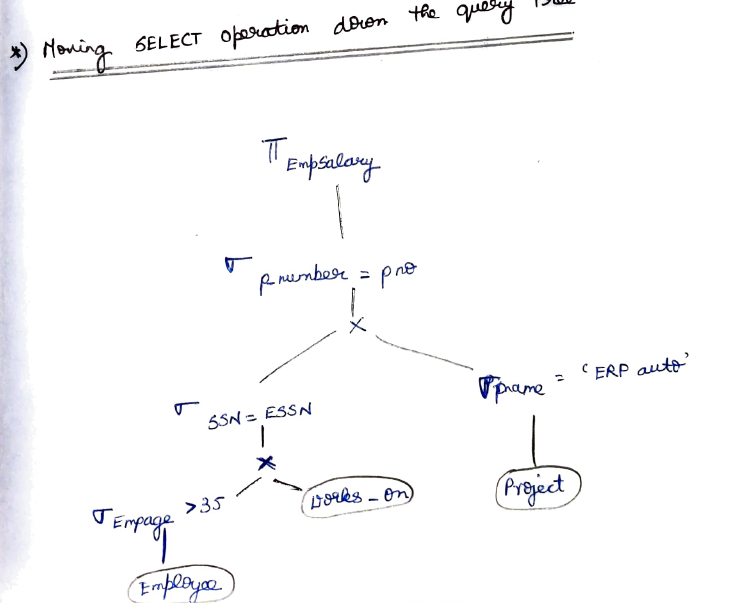 *) Moving SELECT operation down the query
π Empsalary
σ pnumber = pno
×
σ SSN = ESSN
σ pname = 'ERP auto'
×
σ Empage >35
works_on
Project
Employee